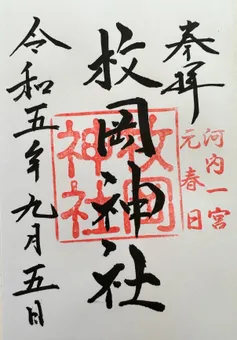 奉拝
河内一宮
元春日
枚岡神社
枚岡
神社
令和五年九月五日